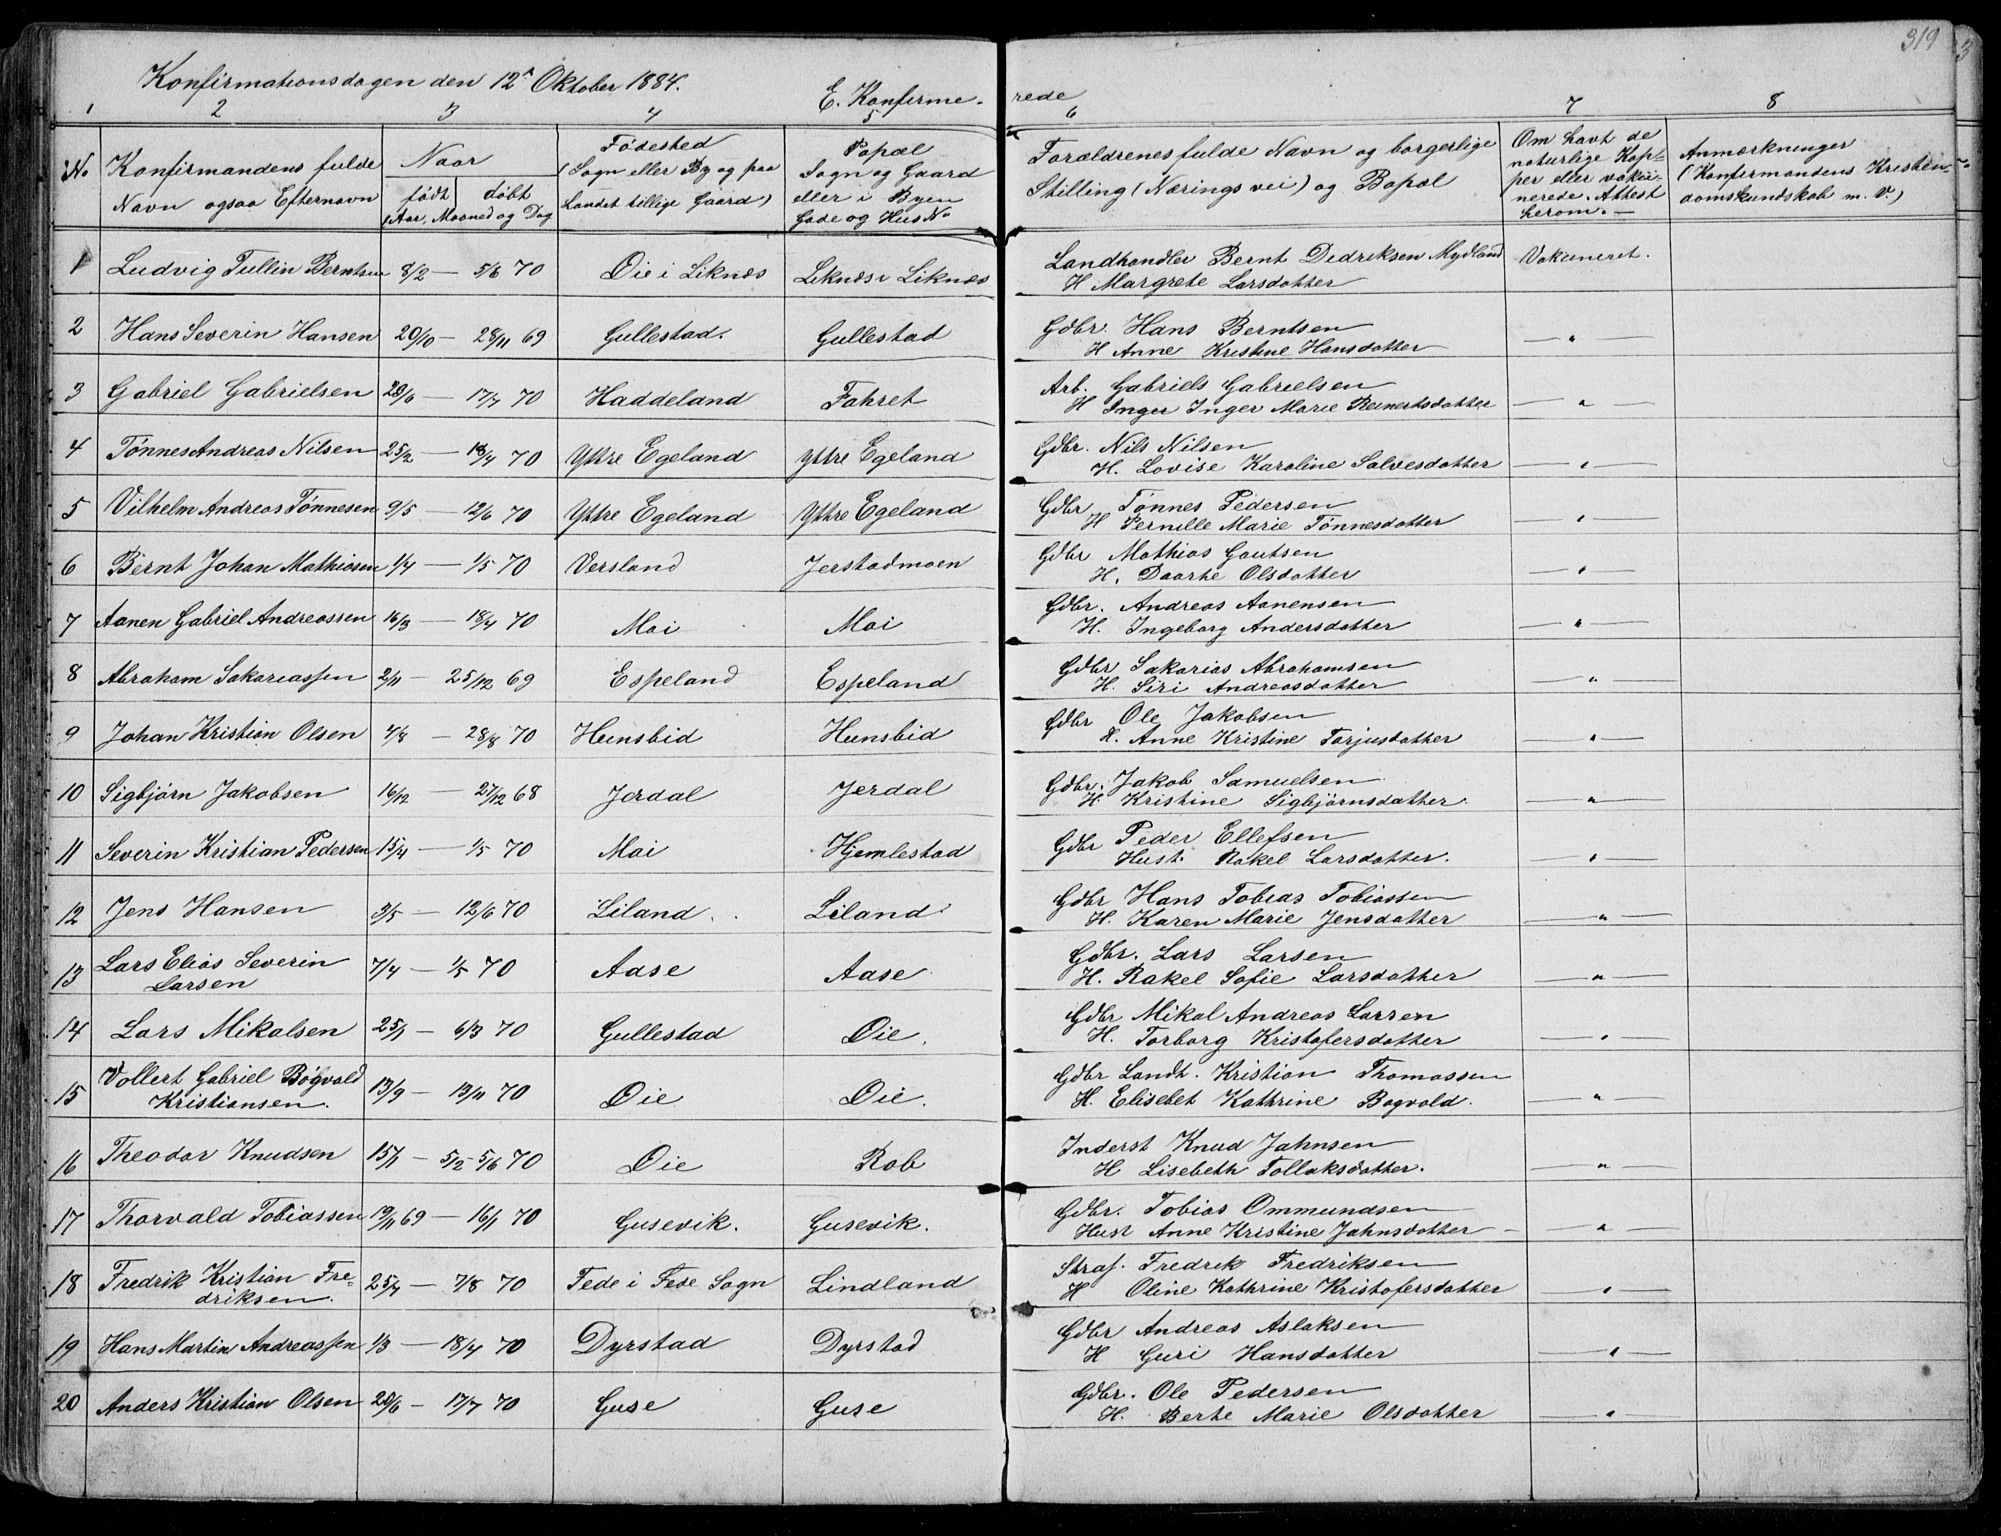 319
Konfirmationsdagen den 12te Oktober 1884.
E. Konfirmerede
1 2 3 4 5 6 7 8
No
Konfirmandens fulde
Navn ogsaa Efternavn
Naar
født døbt
(Aar, Maaned og Dag
Fødested
(Sogn eller By og paa
Landet tillige Gaard)
Bopæl
Sogn og Gaard
eller i Byen
Gade og Hus No
Forældrenes fulde Navn og borgerlige
Stilling (Næringsvei) og Bopæl
Om havt de
naturlige Kop-
per eller vakci-
nerede. Attest
herom.
Anmærkninger
(Konfirmandens Kristen-
domskundskab m. V.)
1 Ludvig Tullin Berntsen 8/2 — 5/6 70 Øie i Liknæs Liknæs i Liknæs Landhandler Bernt Didriksen Mydland Vakcineret.
H Margrete Larsdatter
2 Hans Severin Hansen 20/10 — 28/11 69 Gullestad. Gullestad Gdbr. Hans Berntsen
H Anne Kristine Hansdatter — " —
3 Gabriel Gabrielsen 29/6 — 17/7 70 Haddeland Fahret Arb. Gabriels Gabrielsen
H Inger Inger Marie Reinertsdatter — " —
4 Tønnes Andreas Nilsen 25/2 — 18/4 70 Yttre Egeland Yttre Egeland Gdbr. Nils Nilsen
H. Lovise Karoline Salvesdatter — " —
5 Vilhelm Andreas Tønnesen 9/5 — 12/6 70 Yttre Egeland Yttre Egeland Gdbr Tønnes Pedersen
H Pernille Marie Tønnesdatter — " —
6 Bernt Johan Mathiasen 1/4 — 1/5 70 Versland Jerstadmoen Gdbr Mathias Gautsen
H. Daarte Olsdatter — " —
7 Aanen Gabriel Andreassen 16/3 — 18/4 70 Moi Moi Gdbr. Andreas Aanensen
H. Ingeborg Andersdatter — " —
8 Abraham Sakariassen 2/11 — 25/12 69 Espeland Espeland Gdbr Sakarias Abrahamsen
H. Siri Andreasdatter — " —
9 Johan Kristian Olsen 4/8 — 28/8 70 Hunsbid Hunsbid Gdbr Ole Jakobsen
H. Anne Kristine Torjusdatter — " —
10 Sigbjørn Jakobsen 16/12 — 27/12 68 Jerdal Jerdal Gdbr. Jakob Samuelsen
H. Kristine Sigbjørnsdatter. — " —
11 Severin Kristian Pedersen 15/4 — 1/5 70 Moi Hjemlestad Gdbr Peder Ellefsen
Hust. Rakel Larsdatter. — " —
12 Jens Hansen 3/5 — 12/6 70 Liland. Liland. Gdbr Hans Tobias Tobiassen
H. Karen Marie Jensdatter — " —
13 Lars Elias Severin
Larsen 7/4 — 1/5 70 Aase Aase Gdbr. Lars Larsen
H. Rakel Sofie Larsdatter — " —
14 Lars Mikalsen 25/1 — 6/3 70 Gullestad Øie. Gdbr Mikal Andreas Larsen
H. Torborg Kristofersdatter — " —
15 Vollert Gabriel Bøgvald
Kristiansen. 13/9 — 13/11 70 Øie Øie. Gdbr Landh. Kristian Thomassen
H. Elisebet Kathrine Bøgvald. — " —
16 Theodor Knudsen 15/1 — 5/2 5/6 70 Øie Rob Inderst Knud Jahnsen
H Lisebeth Tollaksdatter. — " —
17 Thorvald Tobiassen 19/11 69 — 16/1 70 Gusevik. Gusevik. Gdbr. Tobias Ommundsen
Hust Anne Kristine Jahnsdatter — " —
18 Fredrik Kristian Fre-
driksen. 25/7 — 7/8 70 Fede i Fede Sogn Lindland Straf. Fredrik Fredriksen
H Oline Kathrine Kristofersdatter — " —
19 Hans Martin Andreassen 1/3 — 18/4 70 Dyrstad Dyrstad Gdbr Andreas Aslaksen
H Guri Hansdatter — " —
20 Anders Kristian Olsen 20/6 — 17/7 70 Guse Guse Gdbr. Ole Pedersen
H. Berte Marie Olsdatter — " —